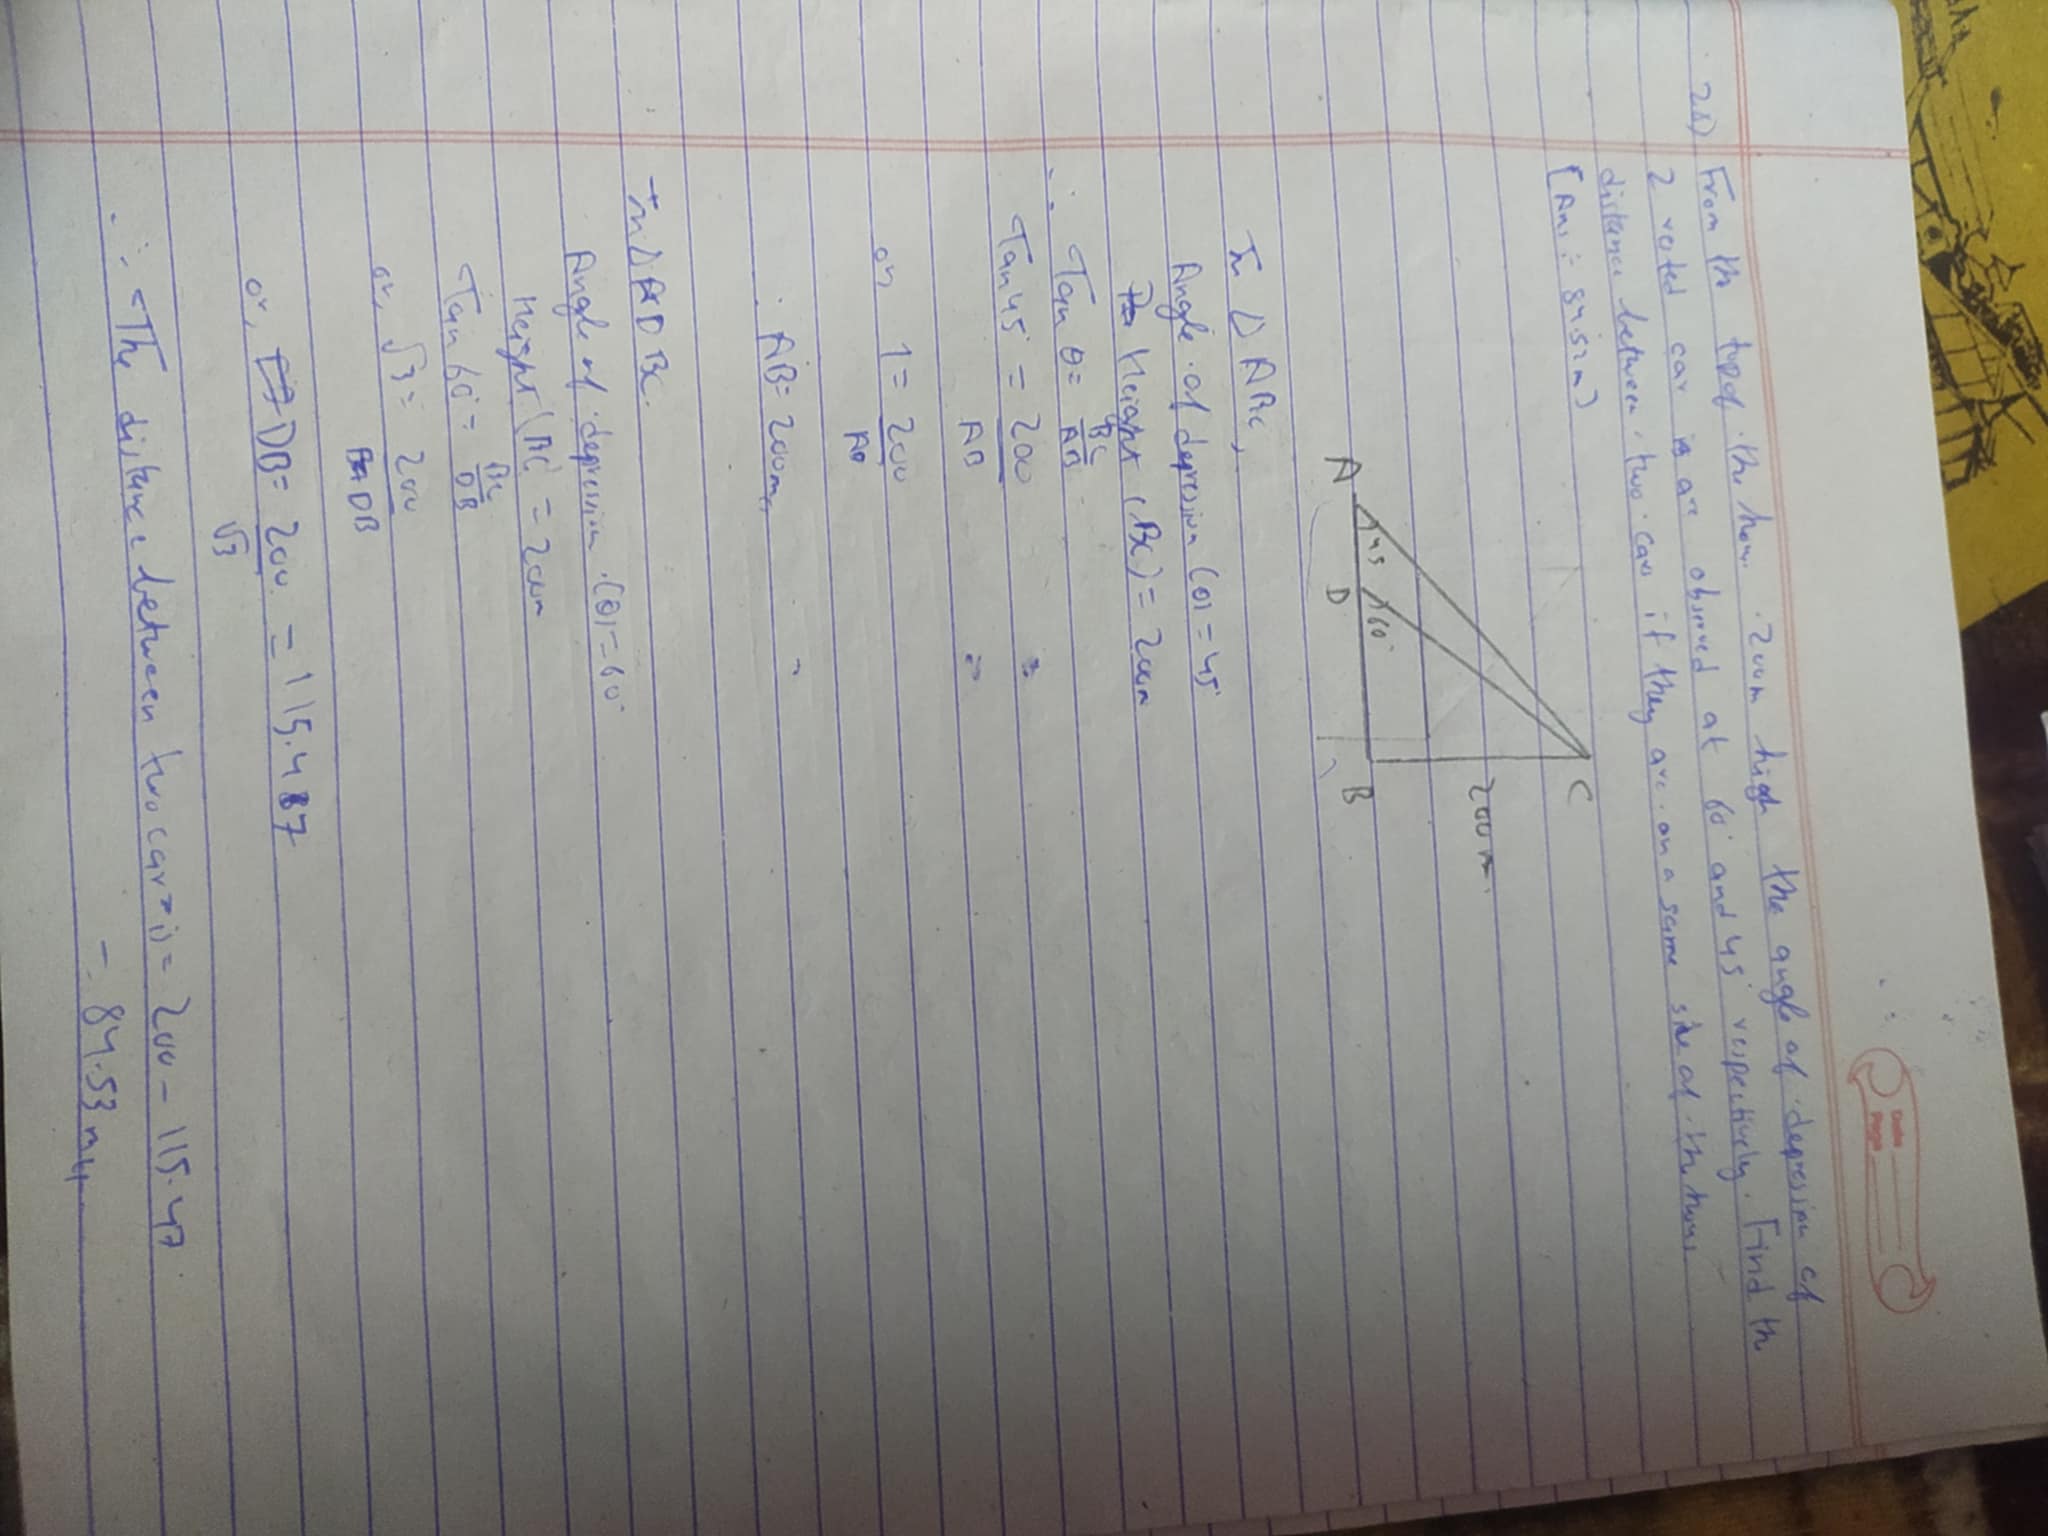 Date
Page
28) From the top of the hous 200m high the angle of depression of
2 rested car is are observed at 60° and 45° respectively. Find the
distance between two cars if they are on a same side of the hous.
[Ans:- 84.52m]
C
200m.
45 60°
A D B
In △ ABC,
Angle of depression (θ) = 45°
Height (BC) = 200m
∴ Tan θ = BC/AB
Tan 45° = 200/AB
or, 1 = 200/AB
∴ AB = 200m,,
In △ DBC.
Angle of depression (θ) = 60°
Height (BC) = 200m
Tan 60° = BC/DB
or, √3 = 200/DB
or, DB = 200/√3 = 115.47
∴ The distance between two car is = 200 - 115.47
= 84.53 m,,